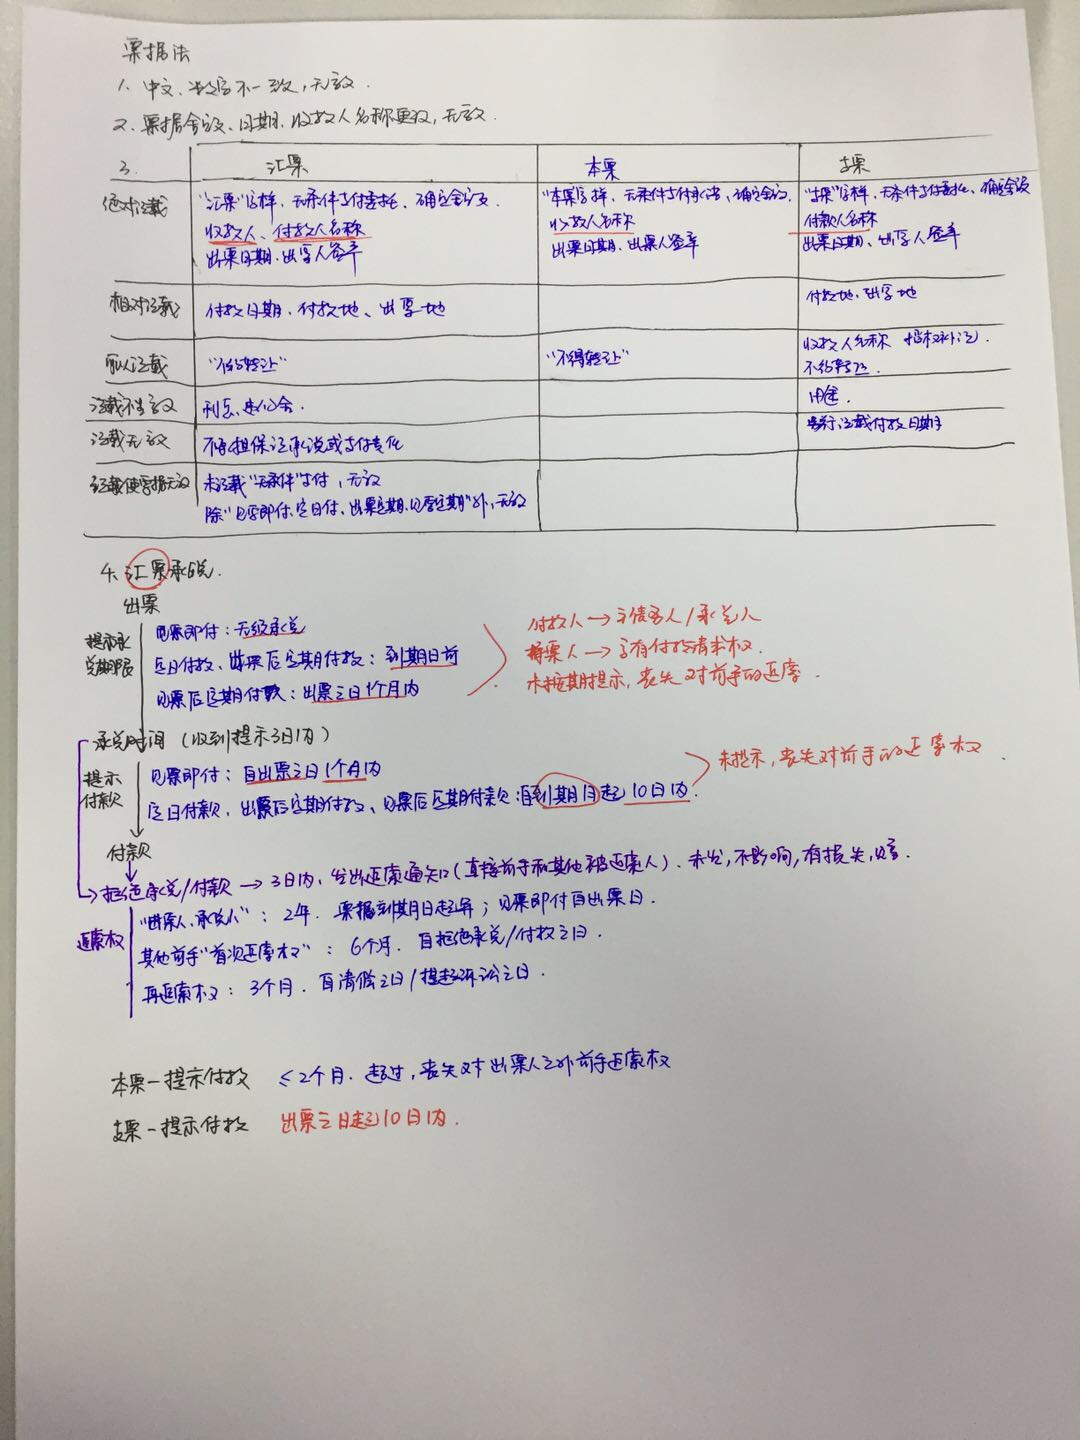 票据法
1、中文、数字不一致，无效.
2、票据金额、日期、收款人名称更改，无效.
3. 汇票 本票 支票
绝对记载 "汇票"字样，无条件支付委托、确定金额 "本票"字样，无条件支付承诺，确定金额. "支票"字样，无条件支付委托、确定金额
收款人、付款人名称 收款人名称 付款人名称
出票日期、出票人签章 出票日期、出票人签章 出票日期、出票人签章
相对记载 付款日期、付款地、出票地 付款地、出票地
可以记载 "不得转让" "不得转让" 收款人名称 授权补记.
不得转让.
记载不生效 利息、违约金. 用途.
记载无效 不得担保证承兑或支付责任 另行记载付款日期
记载使票据无效 未记载"无条件"支付，无效
除"见票即付、定日付、出票定期、见票定期"外，无效
4、汇票承兑.
出票
提示承兑期限 见票即付：无须承兑
定日付款、出票后定期付款：到期日前
见票后定期付款：出票之日1个月内
付款人→主债务人/承兑人
持票人→享有付款请求权.
未按期提示，丧失对前手的追索.
承兑时间（收到提示3日内）
提示付款 见票即付：自出票之日1个月内
定日付款、出票后定期付款、见票后定期付款：自到期日起10日内.
未提示，丧失对前手的追索权.
付款
拒绝承兑/付款→3日内，发出追索通知（直接前手和其他被追索人）.未发，不影响，有损失，赔.
追索权 "出票人、承兑人"：2年. 票据到期日起算；见票即付自出票日.
其他前手"首次追索权"：6个月. 自拒绝承兑/付款之日.
再追索权：3个月. 自清偿之日/提起诉讼之日.
本票－提示付款 ≤2个月. 超过，丧失对出票人之外前手追索权
支票－提示付款 出票之日起10日内.